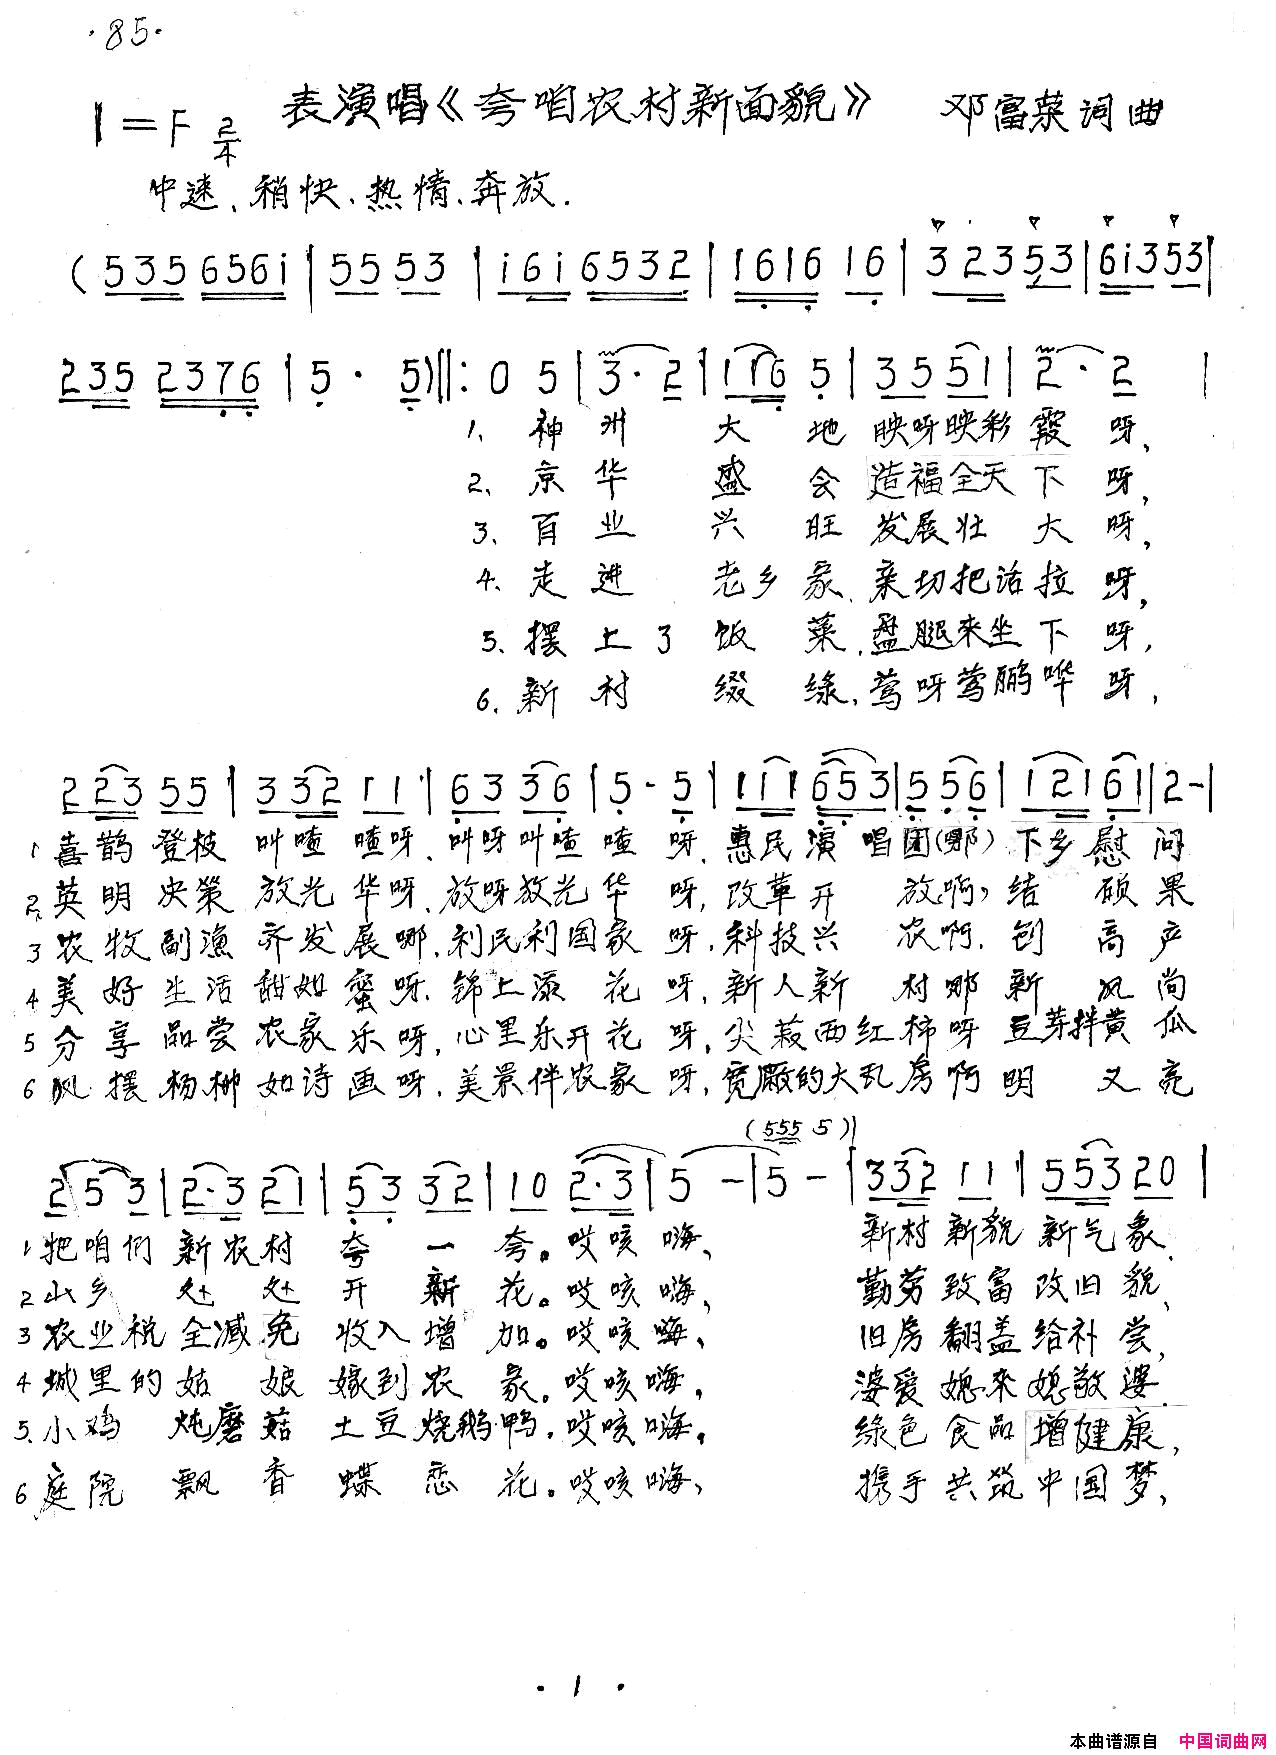 ·85·
表演唱《夸咱农村新面貌》 邓富菜词曲
1=F 2/4
中速、稍快、热情、奔放.
(535 6561̇ | 55 53 | 1̇61̇ 6532 | 1616 16 | 3 23 53 | 61̇3 53 |
235 2376 | 5· 5) ‖: 0 5 | 3· 2 | 116 5 | 35 51 | 2· 2 |
1、神州大地映呀映彩霞呀,
2、京华盛会造福全天下呀,
3、百业兴旺发展壮大呀,
4、走进老乡家、亲切把话拉呀,
5、摆上了饭菜,盘腿来坐下呀,
6、新村缀绿,莺呀莺鹂哗呀,
223 55 | 332 11 | 63 36 | 5· 5 | 111 653 | 5 56 | 121 61 | 2- |
1 喜鹊登枝叫喳喳呀、叫呀叫喳喳呀、惠民演唱团(哪)下乡慰问
2、英明决策放光华呀、放呀放光华呀,改革开放啊,结硕果
3 农牧副渔齐发展哪,利民利国家呀,科技兴农啊,创高产
4 美好生活甜如蜜呀,锦上添花呀,新人新村哪新风尚
5 分享品尝农家乐呀,心里乐开花呀,尖菽西红柿呀豆芽拌黄瓜
6 风摆杨柳如诗画呀,美景伴农家呀,宽厰的大乱房啊明又亮
(555 5)
253 | 2·3 21 | 53 32 | 10 2·3 | 5 - | 5 - | 332 11 | 553 20 |
1 把咱们新农村夸一夸。哎咳嗨、新村新貌新气象、
2 山乡处处开新花。哎咳嗨、勤劳致富改旧貌、
3 农业税全减免收入增加。哎咳嗨、旧房翻盖给补尝,
4 城里的姑娘嫁到农家。哎咳嗨,婆爱媳来媳敬婆.
5、小鸡炖磨菇土豆烧鹅鸭.哎咳嗨。绿色食品增健康,
6 庭院飘香蝶恋花。哎咳嗨、携手共筑中国梦、
·1·
本曲谱源自 中国词曲网